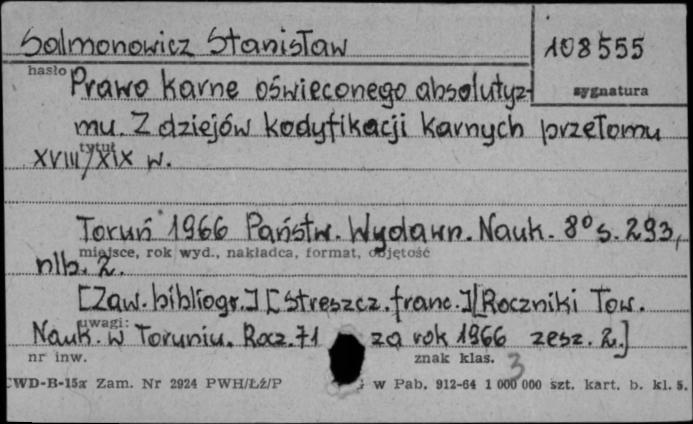 Salmonowicz Stanisław
108555
hasło
sygnatura
Prawo karne oświeconego absolutyz-
mu. Z dziejów kodyfikacji karnych przełomu
tytuł
XVIII/XIX w.
Toruń 1966 Państw. Wydawn. Nauk. 8° s. 293,
miejsce, rok wyd., nakładca, format, objętość
nlb. 2.
[Zaw. bibliogr.] [Streszcz. franc.] [Roczniki Tow.
uwagi:
Nauk. w Toruniu. Rocz. 71 za rok 1966 zesz. 2.]
nr inw.
znak klas.
3
CWD-B-15a Zam. Nr 2924 PWH/Łź/P w Pab. 912-64 1 000 000 szt. kart. b. kl. 5.